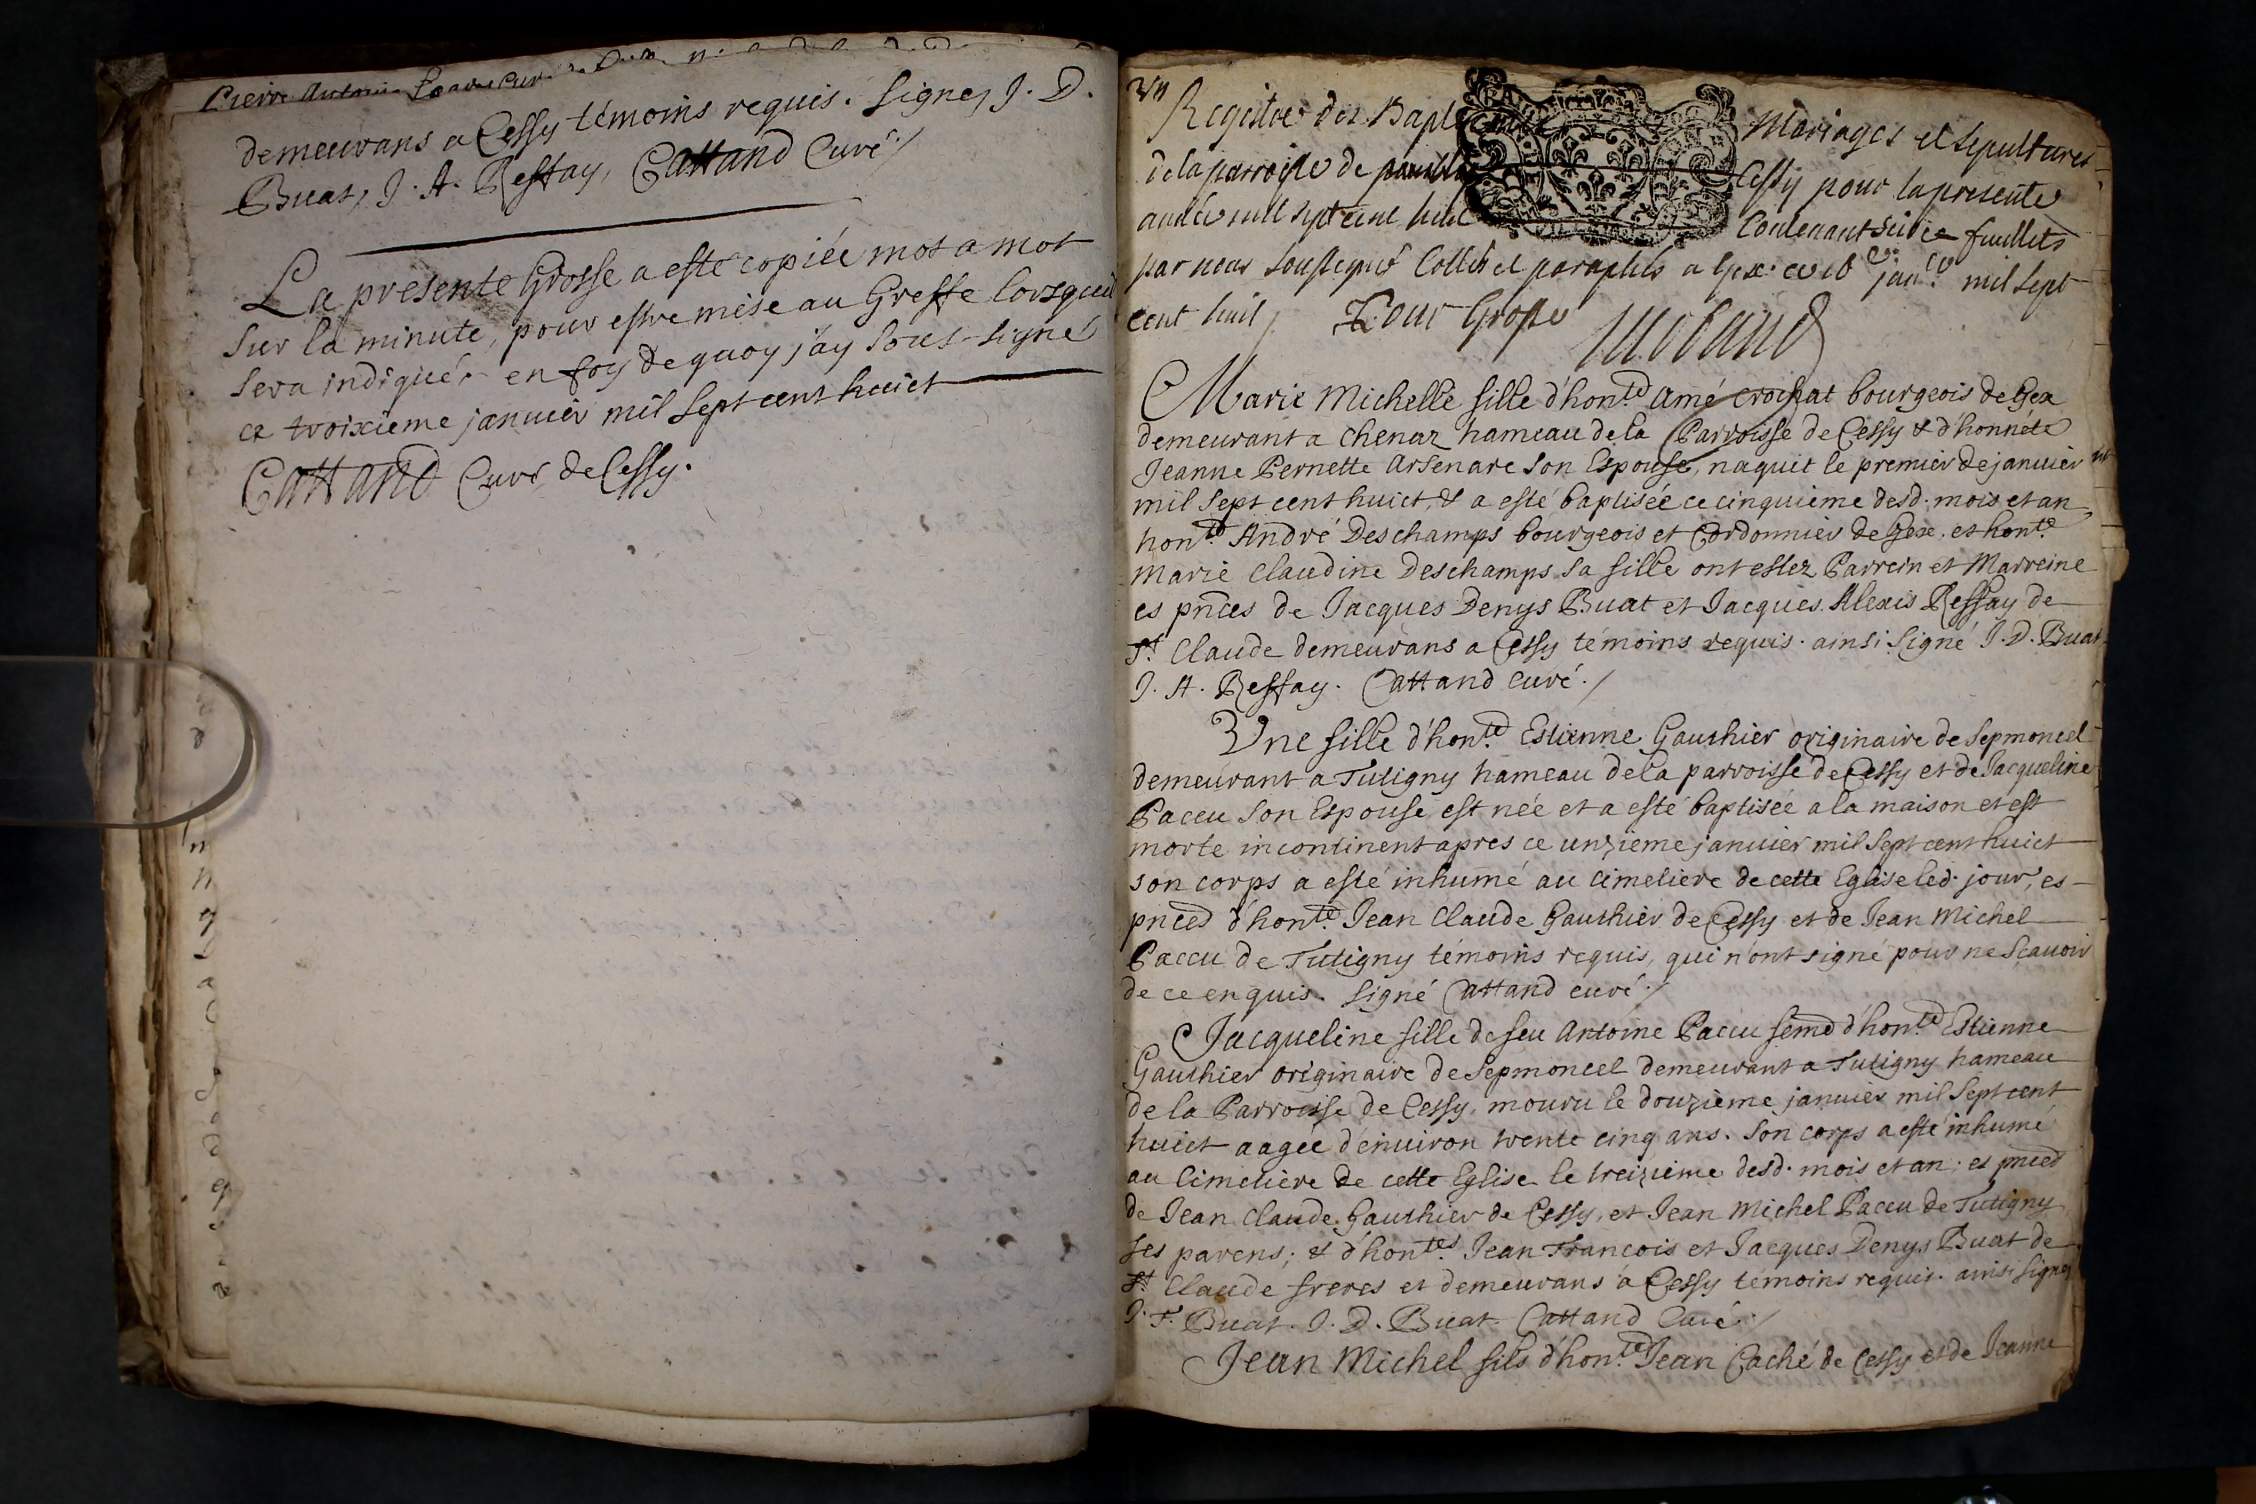 Pierre Antoine
demeurans a Cessy témoins requis. Signez J. D.
Buat, J. A. Reffay, Cattand Curé./
La presente Grosse a esté copiée mot a mot
sur la minute, pour estre mise au Greffe lorsqu'il
sera indiqué, en foy de quoy j'ay sous-signé
ce troixieme januier mil sept cent huict
Cattand Curé de Cessy.
Registre des Baptemes Mariages et sepultures
de la parroisse de Cessy pour la presente
année mil sept cent huit Contenant seize feuillets
par nous soussigné Cottés et paraphés a Gex ce 18e janer mil sept
cent huit, Pour Grosse
Marie Michelle fille d'honte Amé Crochat bourgeois de Gex
demeurant a Chenaz hameau de la Parroisse de Cessy & d'honnête
Jeanne Pernette Arsenare son Espouse, naquit le premier de januier
mil sept cent huict, & a esté baptisée ce cinquième desd. mois et an,
honte André Deschamps bourgeois et Cordonnier de Gex, et honte
Marie Claudine Deschamps sa fille ont estez Parrein et Marreine
es pnces de Jacques Denys Buat et Jacques Alexis Reffay de
St Claude demeurans a Cessy témoins requis. ainsi Signé J. D. Buat
J. A. Reffay. Cattand curé./
Une fille d'honte Estienne Gauthier originaire de Sepmoncel
demeurant a Tutigny hameau de la parroisse de Cessy et de Jacqueline
Paccu son Espouse est née et a esté baptisée a la maison et est
morte incontinent apres ce unzieme januier mil sept cent huict
son corps a esté inhumé au cimetiere de cette Eglise led. jour, es
pnces d'honte Jean Claude Gauthier de Cessy et de Jean Michel
Paccu de Tutigny témoins requis, qui n'ont signé pour ne scauoir
de ce enquis. Signé Cattand curé./
Jacqueline fille de feu Antoine Paccu feme d'honte Estienne
Gauthier originaire de Sepmoncel demeurant a Tutigny hameau
de la Parroisse de Cessy, mouru le douzieme januier mil sept cent
huict aagée d'enuiron trente cinq ans. Son corps a esté inhumé
au Cimetiere de cette Eglise le treizieme desd. mois et an; es pnces
de Jean Claude Gauthier de Cessy, et Jean Michel Paccu de Tutigny
ses parens; & d'hontes Jean François et Jacques Denys Buat de
St Claude freres et demeurans a Cessy témoins requis. ainsi signez
J. F. Buat. J. D. Buat. Cattand Curé./
Jean Michel fils d'honte Jean Caché de Cessy et de Jeanne